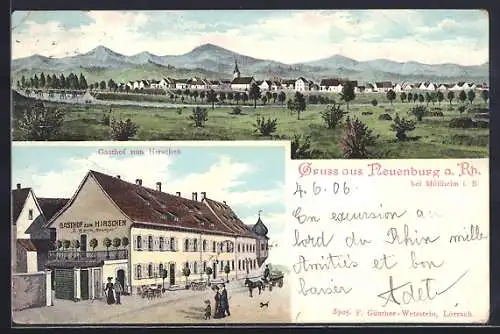 Gasthof zum Hirschen
GASTHOF ZUM HIRSCHEN
Gruss aus Neuenburg a. Rh.
bei Müllheim i. B.
4. 6. 06
En excursion au
bord du Rhin mille
Amitiés et bon
baiser Adel
8905. F. Günther-Wetzstein, Lörrach.